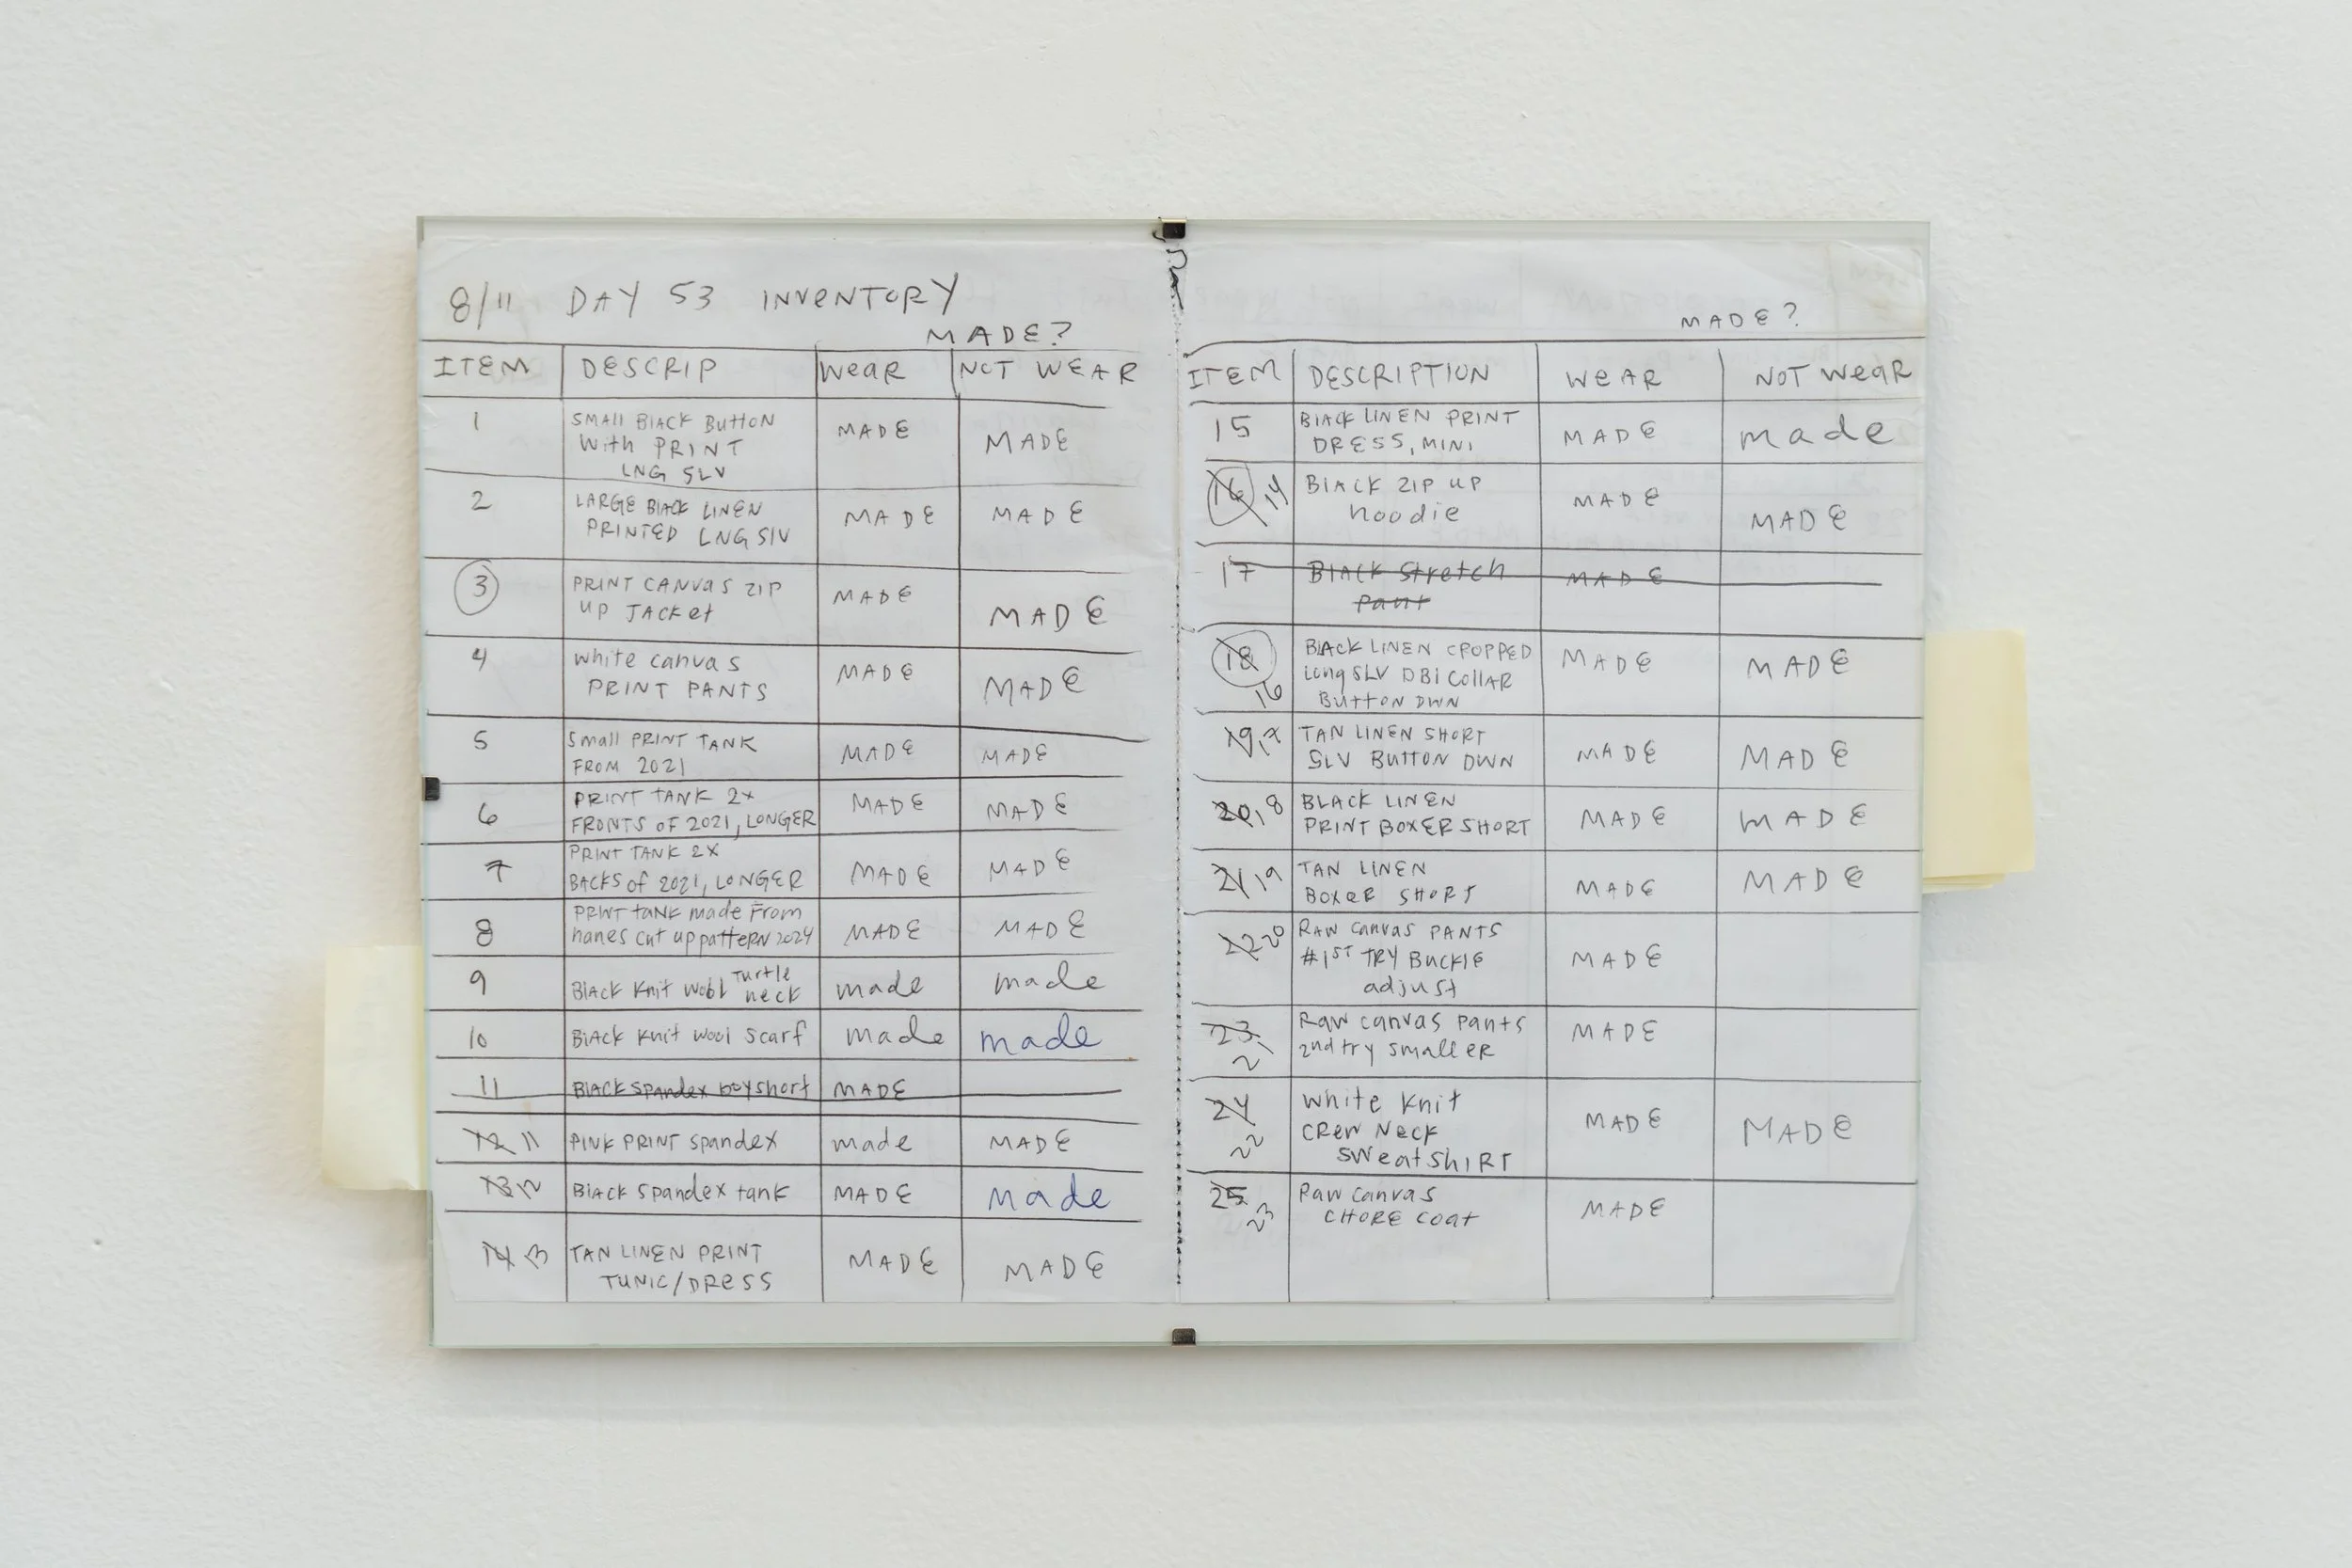 8/11 DAY 53 INVENTORY
MADE?
ITEM DESCRIP WEAR NOT WEAR
1 SMALL BLACK BUTTON MADE MADE
WITH PRINT
LNG SLV
2 LARGE BLACK LINEN MADE MADE
PRINTED LNG SLV
3 PRINT CANVAS ZIP MADE MADE
UP JACKET
4 WHITE CANVAS MADE MADE
PRINT PANTS
5 SMALL PRINT TANK MADE MADE
FROM 2021
6 PRINT TANK 2X MADE MADE
FRONTS OF 2021, LONGER
7 PRINT TANK 2X MADE MADE
BACKS OF 2021, LONGER
8 PRINT TANK made FROM MADE MADE
hanes cut up pattern 2024
9 BLACK Knit WOOL Turtle neck made made
10 BLACK Knit WOOl Scarf made made
11 BLACK spandex boyshort MADE
12 11 PINK PRINT spandex made MADE
13 12 BLACK spandex tank MADE made
14 13 TAN LINEN PRINT MADE MADE
TUNIC/DRESS
MADE?
ITEM DESCRIPTION WEAR NOT WEAR
15 BLACK LINEN PRINT MADE made
DRESS, MINI
16 14 BLACK ZIP UP MADE MADE
hoodie
17 BLACK Stretch MADE
Pant
18 16 BLACK LINEN CROPPED MADE MADE
Long SLV DBl COllAR
Button DWN
19 17 TAN LINEN SHORT MADE MADE
SLV BUTTON DWN
20 18 BLACK LINEN MADE MADE
PRINT BOXER SHORT
21 19 TAN LINEN MADE MADE
BOXER SHORT
22 20 RAW Canvas PANTS MADE
#1ST TRY BUCKLE
adjust
23 21 Raw canvas pants MADE
2nd try smaller
24 22 White Knit MADE MADE
CREW NECK
SWeatSHIRT
25 23 Raw canvas MADE
CHORE Coat